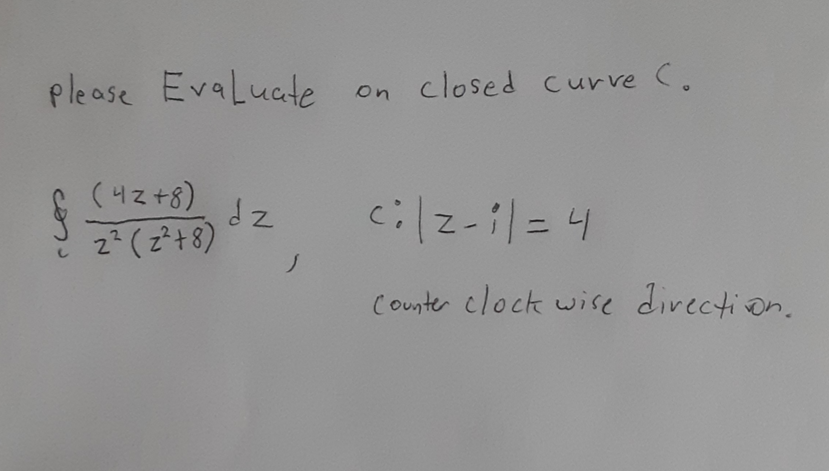 please EvaLuate on closed curve C.
∮c (4z+8)/z²(z²+8) dz, c:|z-i|=4
counter clock wise direction.